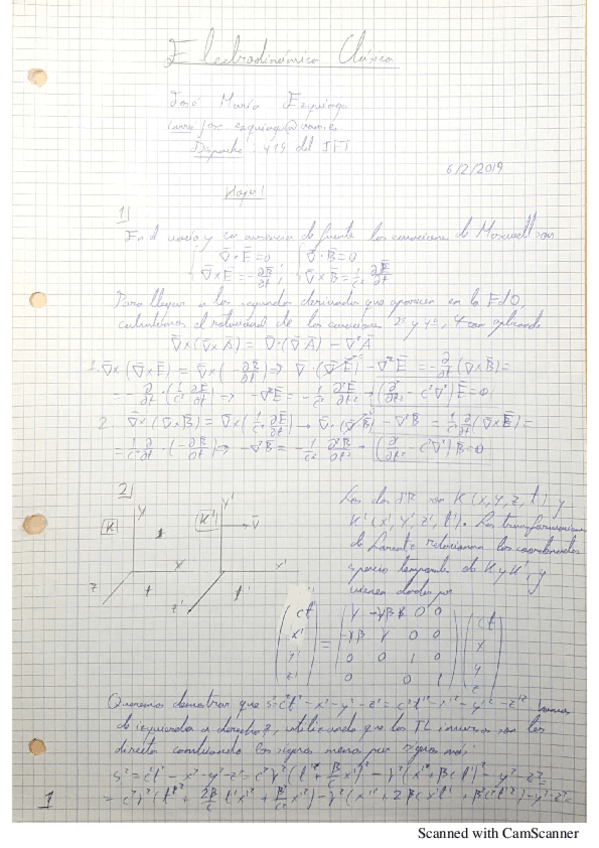 Electrodinámica Clásica
José María Ezquiaga
Despacho: 419 del IFT
6/2/2019
Hoja 1
1)
En el vacío y en ausencia de fuente las ecuaciones de Maxwell son
∇·E̅=0 ∇·B̅=0
∇×E̅=-∂B̅/∂t ; ∇×B̅=1/c² ∂E̅/∂t
Para llegar a las segundas derivadas que aparecen en la EdO,
calculamos el rotacional de las ecuaciones 2ª y 4ª, y con aplicando
∇×(∇×A̅) = ∇·(∇·A̅) - ∇²A̅
1. ∇×(∇×E̅) = ∇×(-∂B̅/∂t) → ∇·(∇·E̅) - ∇²E̅ = -∂/∂t(∇×B̅)=
= -∂/∂t·(1/c² ∂E̅/∂t) → -∇²E̅ = -1/c² ∂²E̅/∂t² → (∂²/∂t² - c²∇²)E̅=0
2. ∇×(∇×B̅) = ∇×(1/c² ∂E̅/∂t) → ∇·(∇·B̅) - ∇²B̅ = 1/c² ∂/∂t(∇×E̅)=
= 1/c² ∂/∂t·(-∂B̅/∂t) → -∇²B̅ = -1/c² ∂²B̅/∂t² → (∂²/∂t² - c²∇²)B̅=0
2)
K y K' y' v̅
x x'
z z'
Los dos SR son K(x,y,z,t) y
K'(x',y',z',t'). Las transformaciones
de Lorentz relacionan las coordenadas
espacio temporales de K y K', y
vienen dadas por
ct' γ -γβ 0 0 ct
x' = -γβ γ 0 0 x
y' 0 0 1 0 y
z' 0 0 1 z
Queremos demostrar que s²=c²t²-x²-y²-z²=c²t'²-x'²-y'²-z'² vamos
de izquierda a derecha, utilizando que las TL inversas son las
directas cambiando los signos menos por signos más:
s²=c²t²-x²-y²-z²=c²γ²(t'+β/c x')²-γ²(x'+βct')²-y'²-z'²=
= c²γ²(t'²+2β/c t'x'+β²/c² x'²)-γ²(x'²+2βcx't'+β²c²t'²)-y'²-z'²=
1
Scanned with CamScanner